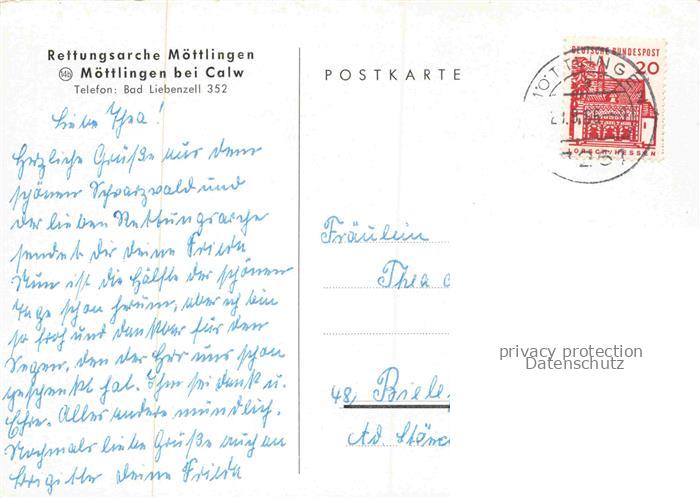 Rettungsarche Möttlingen
14b Möttlingen bei Calw
Telefon: Bad Liebenzell 352
POSTKARTE
DEUTSCHE BUNDESPOST
20
LORSCH/HESSEN
MÖTTLINGEN
Liebe Thea!
Herzliche Grüße aus dem
schönen Schwarzwald und
der lieben Rettungsarche
sendet dir deine Frieda
Nun ist die Hälfte der schönen
Tage schon herum, aber ich bin
so froh und dankbar für den
Segen, den der Herr uns schon
geschenkt hat. Ihm sei dank u.
Ehre. Alles andere mündlich.
Nochmals liebe Grüße auch an
Brigitte deine Frieda
Fräulein
Thea
48, Biele
Ad. Stöc
privacy protection
Datenschutz